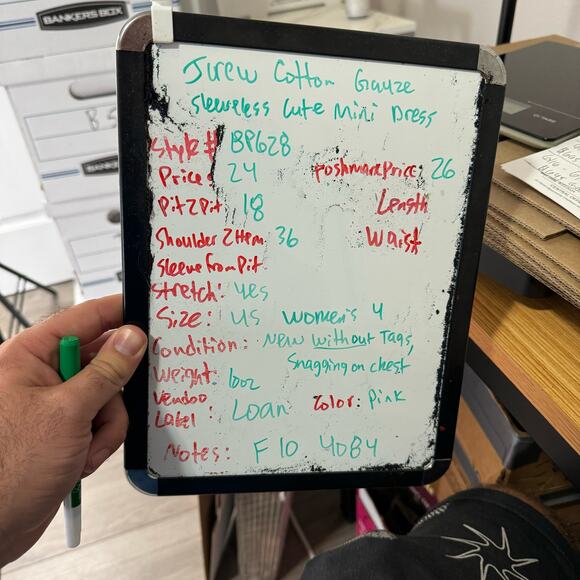 BANKERS BOX
Jcrew Cotton Gauze
Sleeveless Cute Mini Dress
Style # BP628
Price: 24 Poshmark Price: 26
Pit 2 Pit 18 Length
Shoulder 2 Hem 36 Waist
Sleeve from Pit
Stretch: yes
Size: US Women's 4
Condition: New without Tags,
Snagging on chest
Weight: 10oz
Vendoo
Label: Loan Color: Pink
Notes: F10 4084